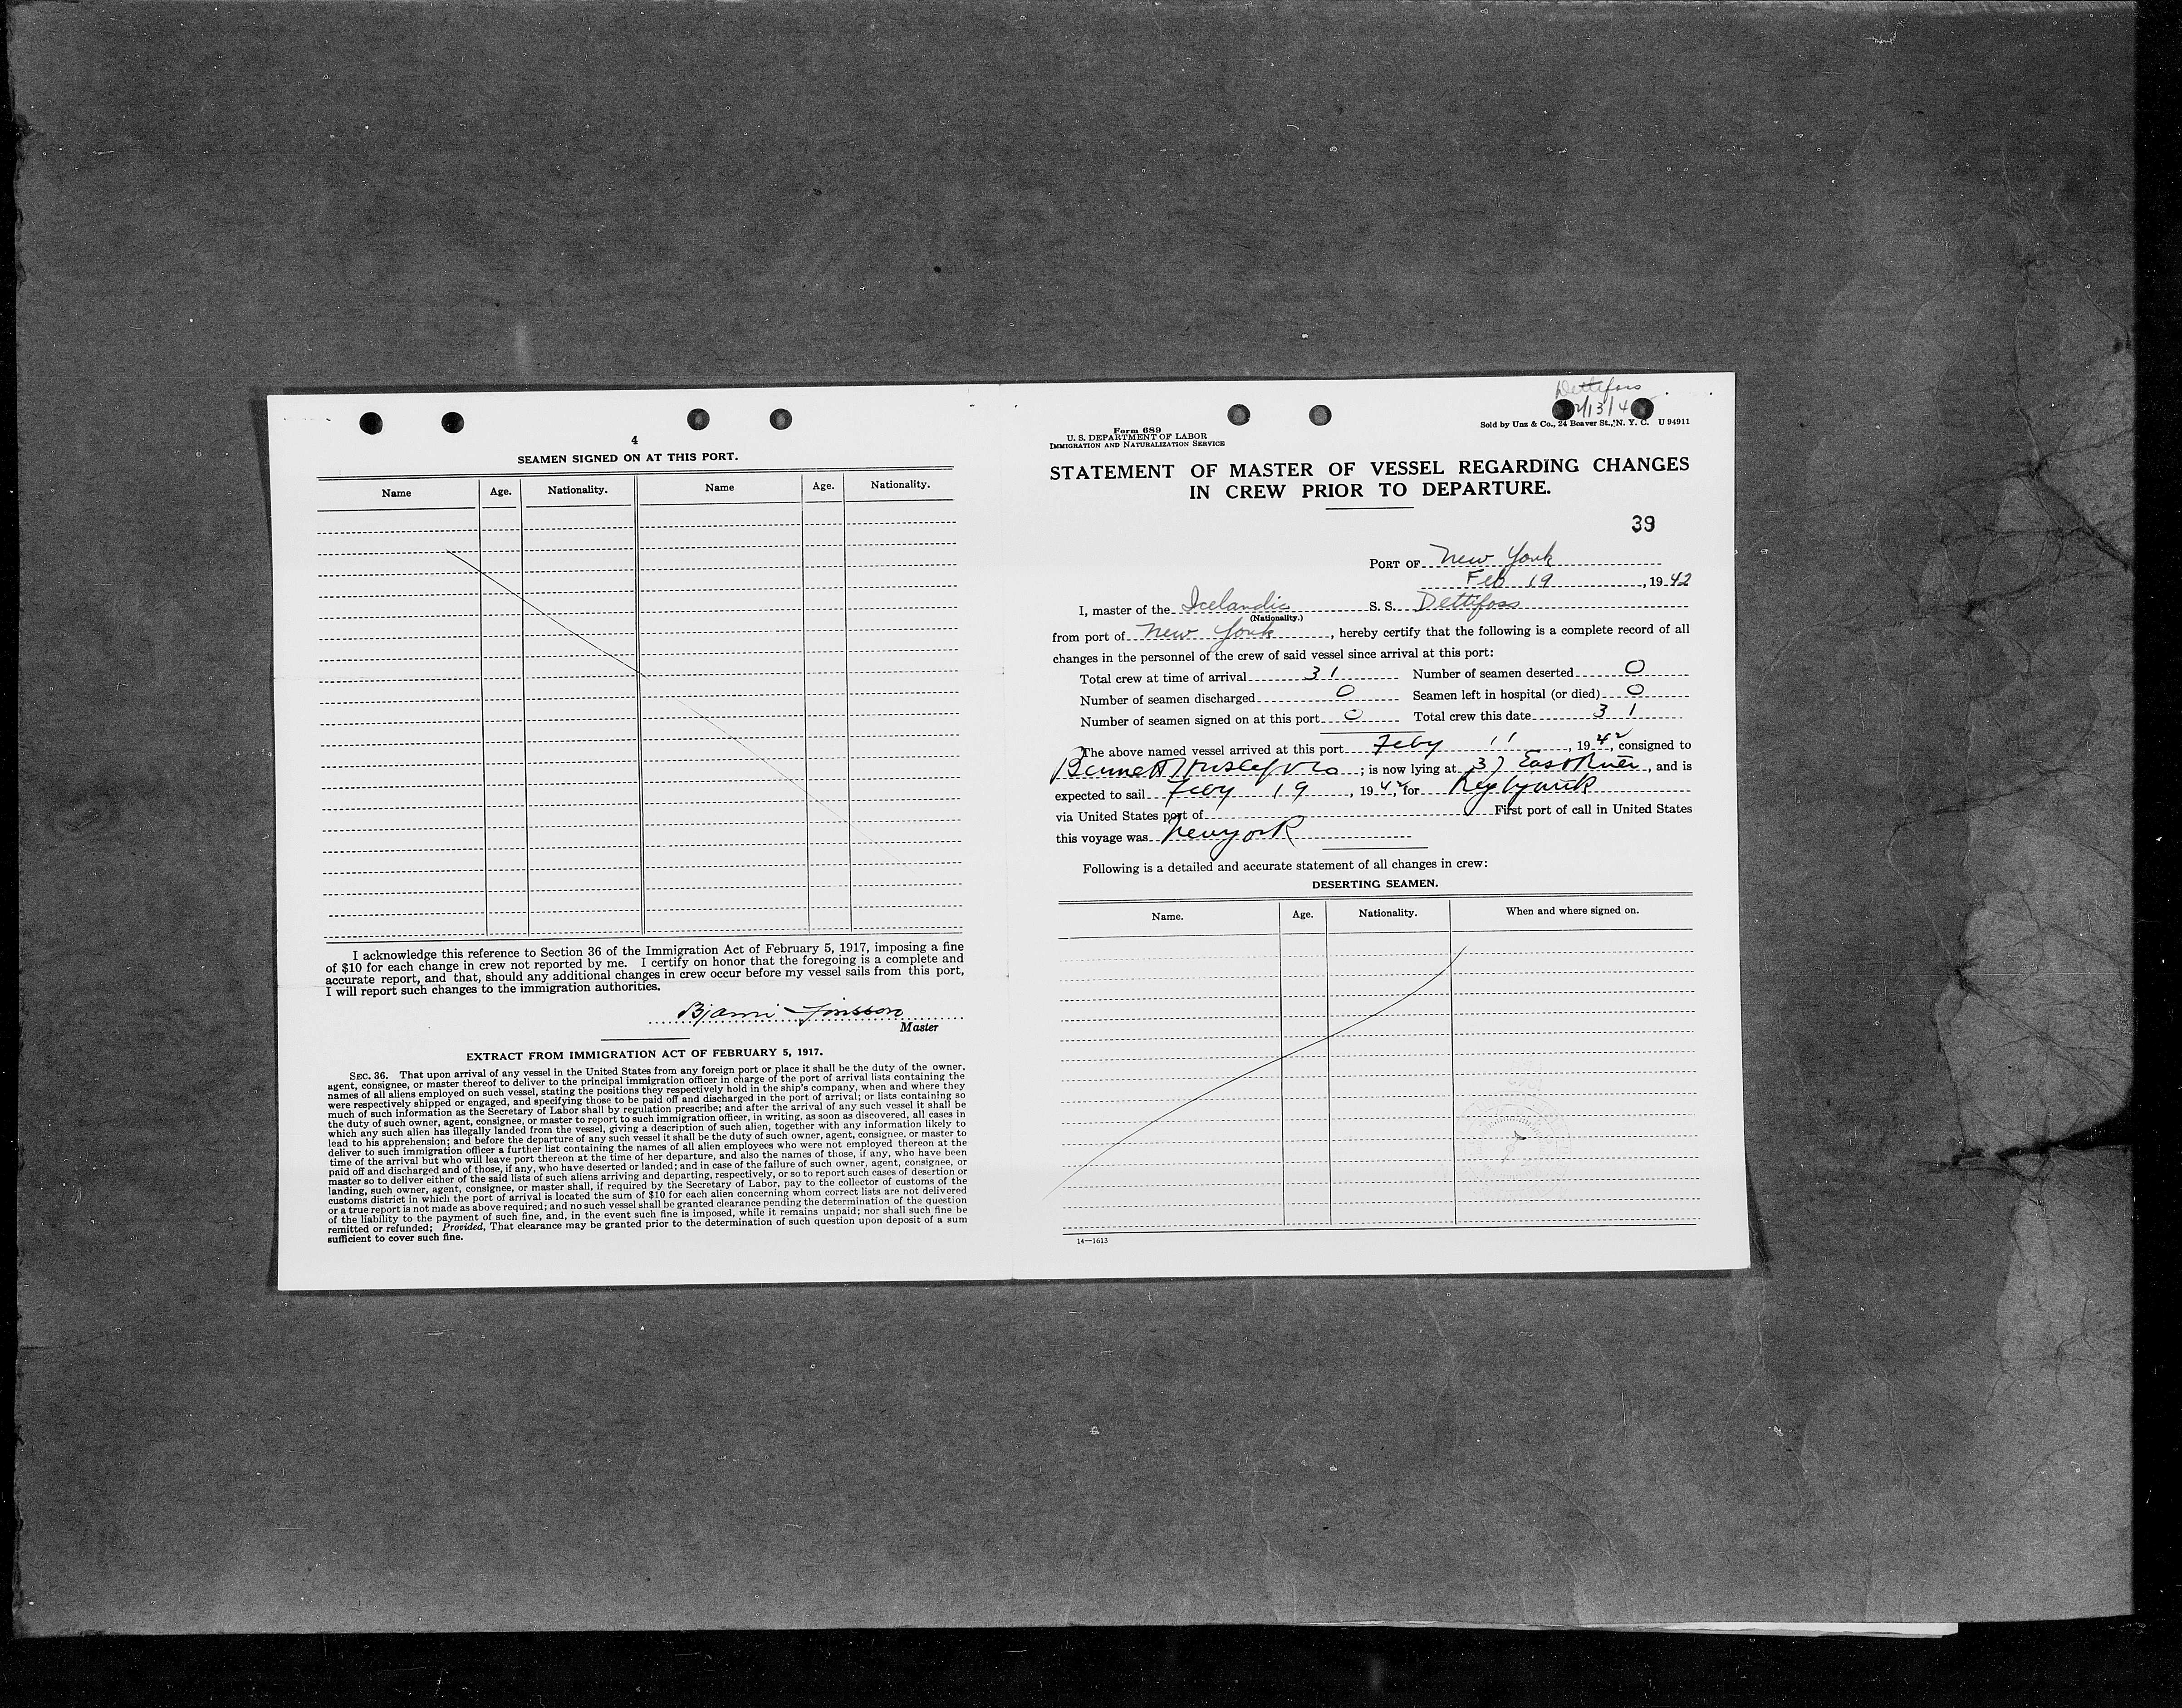 4
SEAMEN SIGNED ON AT THIS PORT.
Name Age. Nationality. Name Age. Nationality.
I acknowledge this reference to Section 36 of the Immigration Act of February 5, 1917, imposing a fine
of $10 for each change in crew not reported by me. I certify on honor that the foregoing is a complete and
accurate report, and that, should any additional changes in crew occur before my vessel sails from this port,
I will report such changes to the immigration authorities.
Bjarni Jonsson
Master
EXTRACT FROM IMMIGRATION ACT OF FEBRUARY 5, 1917.
SEC. 36. That upon arrival of any vessel in the United States from any foreign port or place it shall be the duty of the owner,
agent, consignee, or master thereof to deliver to the principal immigration officer in charge of the port of arrival lists containing the
names of all aliens employed on such vessel, stating the positions they respectively hold in the ship's company, when and where they
were respectively shipped or engaged, and specifying those to be paid off and discharged in the port of arrival; or lists containing so
much of such information as the Secretary of Labor shall by regulation prescribe; and after the arrival of any such vessel it shall be
the duty of such owner, agent, consignee, or master to report to such immigration officer, in writing, as soon as discovered, all cases in
which any such alien has illegally landed from the vessel, giving a description of such alien, together with any information likely to
lead to his apprehension; and before the departure of any such vessel it shall be the duty of such owner, agent, consignee, or master to
deliver to such immigration officer a further list containing the names of all alien employees who were not employed thereon at the
time of the arrival but who will leave port thereon at the time of her departure, and also the names of those, if any, who have been
paid off and discharged and of those, if any, who have deserted or landed; and in case of the failure of such owner, agent, consignee, or
master so to deliver either of the said lists of such aliens arriving and departing, respectively, or so to report such cases of desertion or
landing, such owner, agent, consignee, or master shall, if required by the Secretary of Labor, pay to the collector of customs of the
customs district in which the port of arrival is located the sum of $10 for each alien concerning whom correct lists are not delivered
or a true report is not made as above required; and no such vessel shall be granted clearance pending the determination of the question
of the liability to the payment of such fine, and, in the event such fine is imposed, while it remains unpaid; nor shall such fine be
remitted or refunded; Provided, That clearance may be granted prior to the determination of such question upon deposit of a sum
sufficient to cover such fine.
Dettifoss
2/13/4
Form 689
U. S. DEPARTMENT OF LABOR
IMMIGRATION AND NATURALIZATION SERVICE
Sold by Unz & Co., 24 Beaver St., N. Y. C. U 94911
STATEMENT OF MASTER OF VESSEL REGARDING CHANGES
IN CREW PRIOR TO DEPARTURE.
39
PORT OF New York
Feb 19, 1942
I, master of the Icelandic S. S. Dettifoss
(Nationality.)
from port of New York, hereby certify that the following is a complete record of all
changes in the personnel of the crew of said vessel since arrival at this port:
Total crew at time of arrival 31 Number of seamen deserted 0
Number of seamen discharged 0 Seamen left in hospital (or died) 0
Number of seamen signed on at this port 0 Total crew this date 31
The above named vessel arrived at this port Feby 11, 1942, consigned to
Bennett ; is now lying at 37 East River, and is
expected to sail Feby 19, 1942, for Reykjavik
via United States port of First port of call in United States
this voyage was New york
Following is a detailed and accurate statement of all changes in crew:
DESERTING SEAMEN.
Name. Age. Nationality. When and where signed on.
14—1613